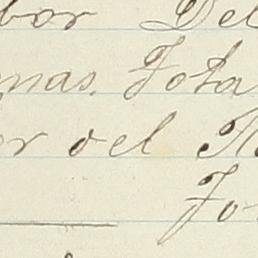 bor Del
mas. Jota
or del R
Jo